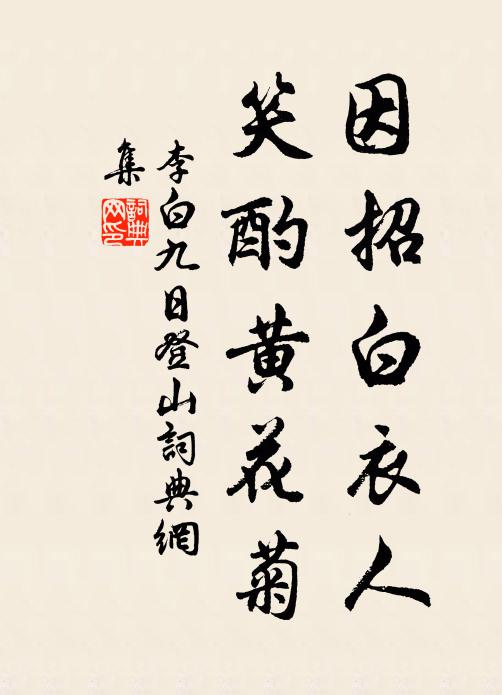 因招白衣人
笑酌黄花菊
李白九日登山詞典網
集
詞典網印